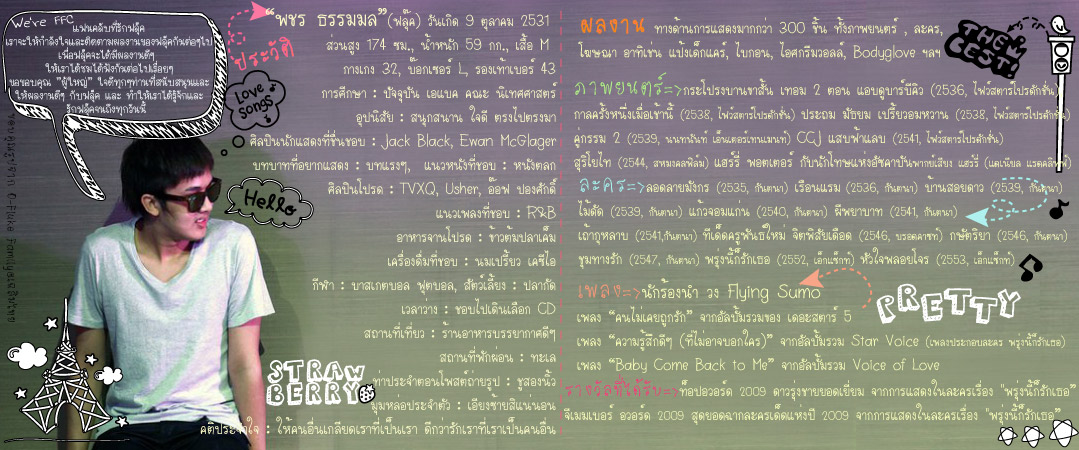 We're FFC
แฟนคลับที่รักฟลุ๊ค
เราจะให้กำลังใจและติดตามผลงานของฟลุ๊คกันต่อๆไป
เพื่อฟลุ๊คจะได้มีผลงานดีๆ
ให้เราได้ชมได้ฟังกันต่อไปเรื่อยๆ
ขอขอบคุณ "ผู้ใหญ่" ใจดีทุกๆท่านที่สนับสนุนและ
ให้ผลงานดีๆ กับฟลุ๊ค และ ทำให้เราได้รู้จักและ
รักฟลุ๊คจนถึงทุกวันนี้
Love Songs
Hello
STRAW BERRY
ประวัติ
"พชร ธรรมมล"(ฟลุ๊ค) วันเกิด 9 ตุลาคม 2531
ส่วนสูง 174 ซม., น้ำหนัก 59 กก., เสื้อ M
กางเกง 32, บ๊อกเซอร์ L, รองเท้าเบอร์ 43
การศึกษา : ปัจจุบัน เอแบค คณะ นิเทศศาสตร์
อุปนิสัย : สนุกสนาน ใจดี ตรงไปตรงมา
ศิลปินนักแสดงที่ชื่นชอบ : Jack Black, Ewan McGlager
บทบาทที่อยากแสดง : บทแรงๆ, แนวหนังที่ชอบ : หนังตลก
ศิลปินโปรด : TVXQ, Usher, อ๊อฟ ปองศักดิ์
แนวเพลงที่ชอบ : R&B
อาหารจานโปรด : ข้าวต้มปลาเค็ม
เครื่องดื่มที่ชอบ : นมเปรี้ยว เคซีโอ
กีฬา : บาสเกตบอล ฟุตบอล, สัตว์เลี้ยง : ปลากัด
เวลาว่าง : ชอบไปเดินเลือก CD
สถานที่เที่ยว : ร้านอาหารบรรยากาศดีๆ
สถานที่พักผ่อน : ทะเล
ท่าประจำตอนโพสต์ถ่ายรูป : ชูสองนิ้ว
มุมหล่อประจำตัว : เอียงซ้ายสิแน่นอน
คติประจำใจ : ให้คนอื่นเกลียดเราที่เป็นเรา ดีกว่ารักเราที่เราเป็นคนอื่น
ผลงาน ทางด้านการแสดงมากกว่า 300 ชิ้น ทั้งภาพยนตร์ , ละคร,
โฆษณา อาทิเช่น แป้งเด็กแคร์, ไบกอน, ไอศกรีมวอลล์, Bodyglove ฯลฯ
ภาพยนตร์=>กระโปรงบานขาสั้น เทอม 2 ตอน แอบดูบาร์บีคิว (2536, ไฟว์สตาร์โปรดักชั่น)
กาลครั้งหนึ่งเมื่อเช้านี้ (2538, ไฟว์สตาร์โปรดักชั่น) ประถม มัธยม เปรี้ยวอมหวาน (2538, ไฟว์สตาร์โปรดักชั่น)
คู่กรรม 2 (2539, นนทนันท์ เอ็นเตอร์เทนเมนท์) CCJ แสบฟ้าแลบ (2541, ไฟว์สตาร์โปรดักชั่น)
สุริโยไท (2544, สหมงคลฟิล์ม) แฮร์รี่ พอตเตอร์ กับนักโทษแห่งอัซคาบันพากย์เสียง แฮร์รี่ (แดเนียล แรดคลิฟฟ์)
ละคร=>ลอดลายมังกร (2535, กันตนา) เรือนแรม (2536, กันตนา) บ้านสอยดาว (2539, กันตนา)
ไม้ดัด (2539, กันตนา) แก้วจอมแก่น (2540, กันตนา) ผีพยาบาท (2541, กันตนา)
เถ้ากุหลาบ (2541,กันตนา) ทีเด็ดครูพันธ์ใหม่ จิตพิสัยเดือด (2546, บรอดคาซท์) กษัตริยา (2546, กันตนา)
ขุมทางรัก (2547, กันตนา) พรุ่งนี้ก็รักเธอ (2552, เอ็กแซ็กท์) หัวใจพลอยโจร (2553, เอ็กแซ็กท์)
เพลง=>นักร้องนำ วง Flying Sumo
เพลง "คนไม่เคยถูกรัก" จากอัลบั้มรวมของ เดอะสตาร์ 5
เพลง "ความรู้สึกดีๆ (ที่ไม่อาจบอกใคร)" จากอัลบั้มรวม Star Voice (เพลงประกอบละคร พรุ่งนี้ก็รักเธอ)
เพลง "Baby Come Back to Me" จากอัลบั้มรวม Voice of Love
รางวัลที่ได้รับ=>ท็อปอวอร์ด 2009 ดาวรุ่งชายยอดเยี่ยม จากการแสดงในละครเรื่อง "พรุ่งนี้ก็รักเธอ"
จีเมมเบอร์ อวอร์ด 2009 สุดยอดฉากละครเด็ดแห่งปี 2009 จากการแสดงในละครเรื่อง "พรุ่งนี้ก็รักเธอ"
PRETTY